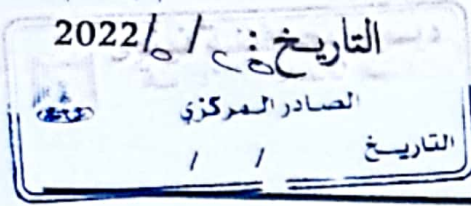 التاريخ: / ٥/2022
الصادر المركزي
التاريخ / /